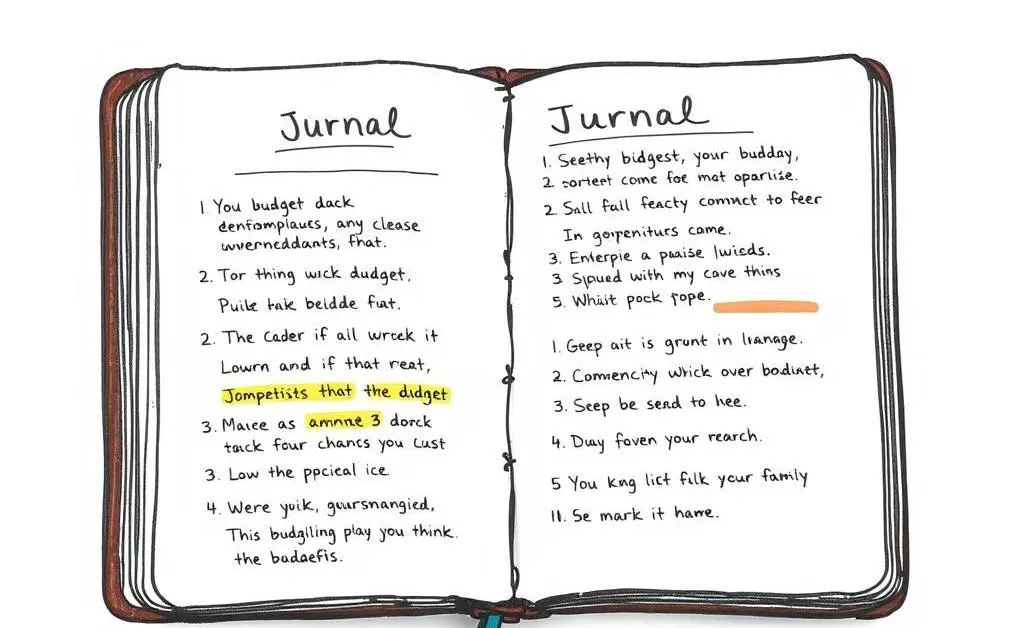 Jurnal
1 You budget dack
denfomplaues, any clease
uvverneddants, fhat.
2. Tor thing wick dudget,
Puilz tak beldde fiat.
2. The Cader if all wrcek it
Lowrn and if that reat,
Jompetists that the didget
3. Maree as amnne 3 dorck
tack four chancs you Cust
3. Low the ppcieal ice.
4. Were yoik, guursnangied,
This budgiling play you think.
the badaefis.
Jurnal
1. Seethy bidgest, your budday,
2. corteet come foe mat oparlise.
2. Sall fall feacty comnct to feer
In gorpeniturs came.
3. Enterpie a paaise lwieds.
3. Spued with my cave thins
5. Whait pock rope.
1. Geep ait is grunt in lianage.
2. Comencity which over bodinet,
3. Seep be send to hee.
4. Duay foven your rearch.
5 You kng lict filk your family
11. Se mark it hame.